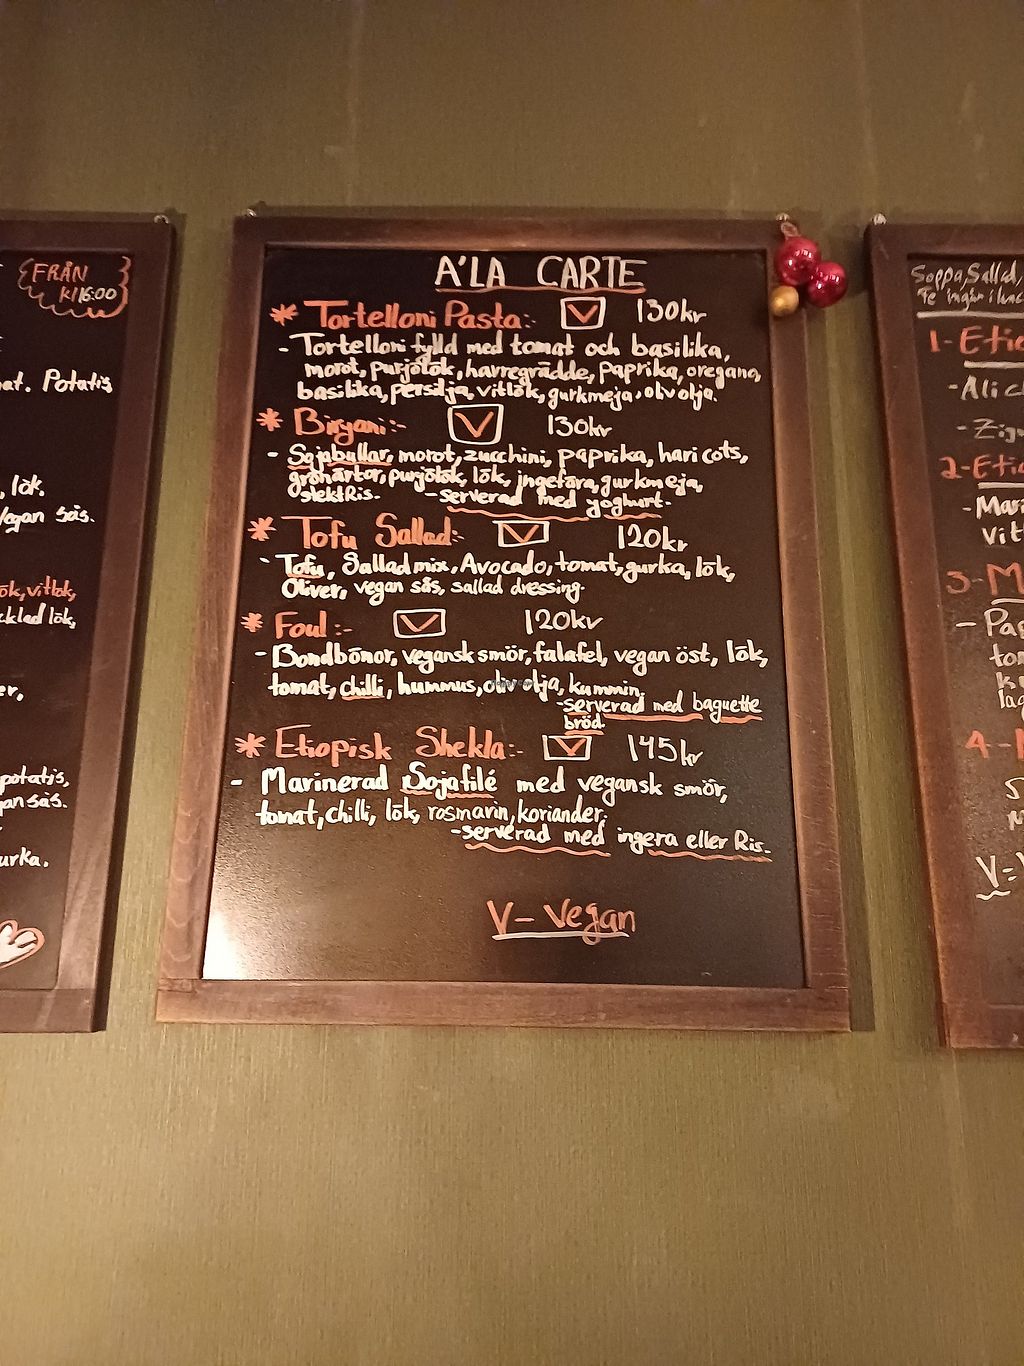 FRÅN
kl 16:00
at. Potatis
, lök.
Vegan sås.
ök, vitlök,
cklad lök,
er,
potatis,
an sås.
urka.
A'LA CARTE
* Tortelloni Pasta:- V 130kr
- Tortelloni fylld med tomat och basilika,
morot, purjölök, havregrädde, Paprika, oregano,
basilika, persilja, vitlök, gurkmeja, oliv olja.
* Biryani:- V 130kr
- Sojabullar, morot, zucchini, paprika, hari cots,
grönärtor, purjölök, lök, ingefära, gurkmeja,
stekt Ris. - serverad med yoghurt.
* Tofu Sallad:- V 120kr
- Tofu, Sallad mix, Avocado, tomat, gurka, lök,
Oliver, vegan sås, sallad dressing.
* Foul:- V 120kr
- Bondbönor, vegansk smör, falafel, vegan öst, lök,
tomat, chilli, hummus, oliv olja, kummin.
- serverad med baguette
bröd.
* Etiopisk Shekla:- V 145kr
- Marinerad Sojafilé med vegansk smör,
tomat, chilli, lök, rosmarin, koriander.
- serverad med ingera eller Ris.
V - Vegan
Soppa, Sallad,
Te ingår i
1- Etio
- Ali c
- Zig
2- Etio
- Mar
vit
3- M
- Pap
tom
4-
V=